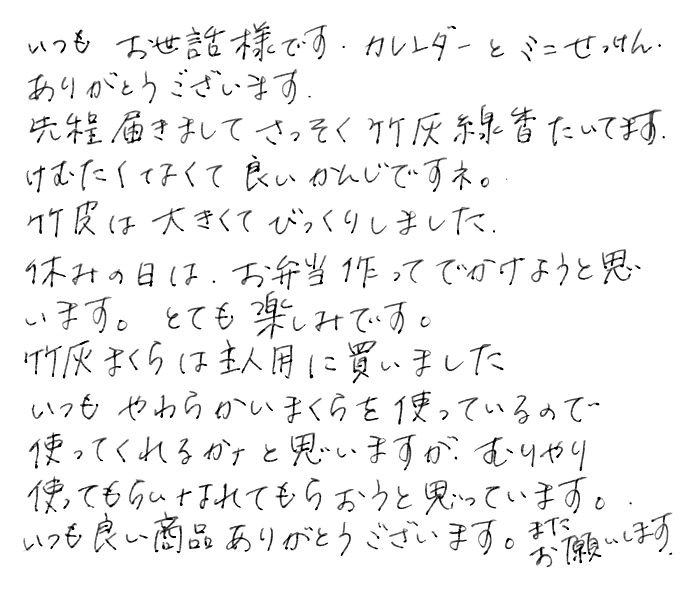 いつも お世話様です. カレンダーとミニせっけん.
ありがとうございます.
先程届きましてさっそく竹灰線香たいてます.
けむたくなくて良いかんじですネ。
竹皮は大きくてびっくりしました.
休みの日は. お弁当作ってでかけようと思
います。とても楽しみです。
竹灰まくらは主人用に買いました
いつもやわらかいまくらを使っているので
使ってくれるかナと思いますが. むりやり
使ってもらいなれてもらおうと思っています。
いつも良い商品ありがとうございます。また
お願いします.